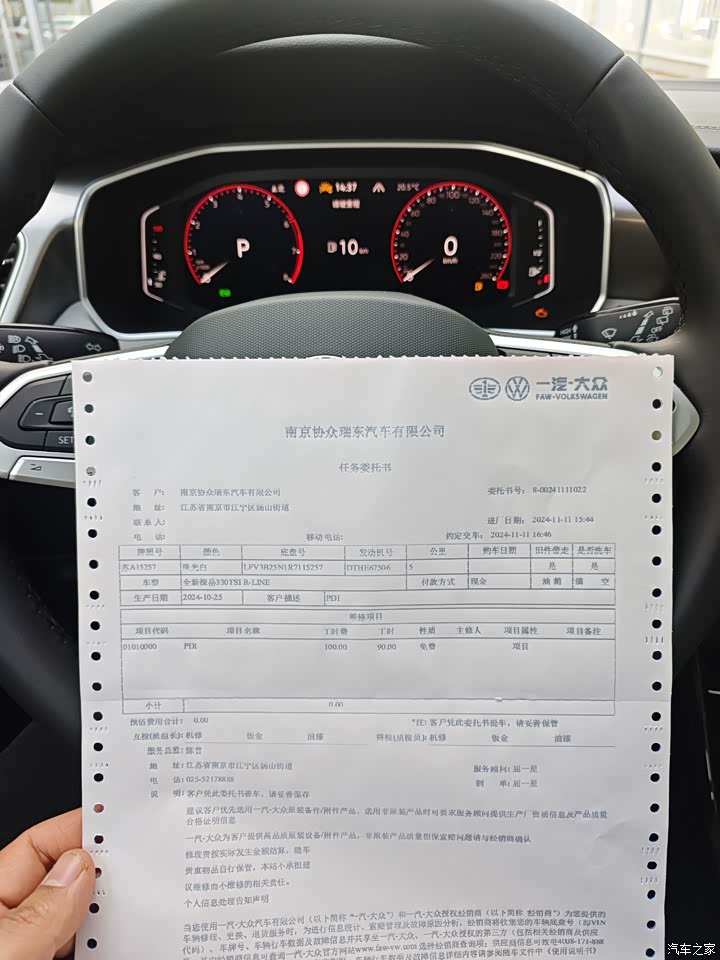 14:37
20.5℃
P
10 km
0
km/h
SET
一汽-大众
FAW-VOLKSWAGEN
南京协众瑞东汽车有限公司
任务委托书
客 户: 南京协众瑞东汽车有限公司 委托书号: 8-00241111022
地 址: 江苏省南京市江宁区汤山街道
联系人: 进厂日期: 2024-11-11 15:44
电 话: 移动电话: 约定交车: 2024-11-11 16:46
牌照号 颜色 底盘号 发动机号 公里 购车日期 旧件带走 是否洗车
苏A15257 珠光白 LFV3B25N1R7115257 DTHE67506 5 是 是
车型 全新探岳330TSI R-LINE 付款方式 现金 油箱 满 空
生产日期 2024-10-25 客户描述 PDI
维修项目
项目代码 项目名称 工时费 工时 性质 主修人 项目属性 项目备注
01010000 PDI 100.00 90.00 免费 项目
小计 0.00
预估费用合计: 0.00 *注: 客户凭此委托书提车, 请妥善保管
互检(班组长): 机修 钣金 油漆 终检(质检员): 机修 钣金 油漆
服务总监: 陈普
地 址: 江苏省南京市江宁区汤山街道 服务顾问: 屈一星
电 话: 025-52178888 制 单: 屈一星
说 明: 客户凭此委托书提车, 请妥善保存
建议客户优先选用一汽-大众原装备件/附件产品, 选用非原装产品时可要求服务顾问提供生产厂资质信息及产品质量
合格证明信息
一汽-大众为客户提供高品质原装设备/附件产品, 非原装产品质量担保索赔问题请与经销商确认
修理费按实际发生金额结算, 随车
贵重物品自行保管, 本站不承担建
议维修而不维修的相关责任。
个人信息处理告知声明
当您使用一汽-大众汽车有限公司 (以下简称“一汽-大众”) 和一汽-大众授权经销商 (以下简称“经销商”) 为您提供的
车辆修理、更换、退货服务时, 为进行信息统计、索赔管理及故障原因分析, 经销商将收集您的车辆底盘号 (即VIN
代码) 、车牌号、车辆行车数据及故障信息并共享至一汽-大众、一汽-大众授权的第三方
汽车之家